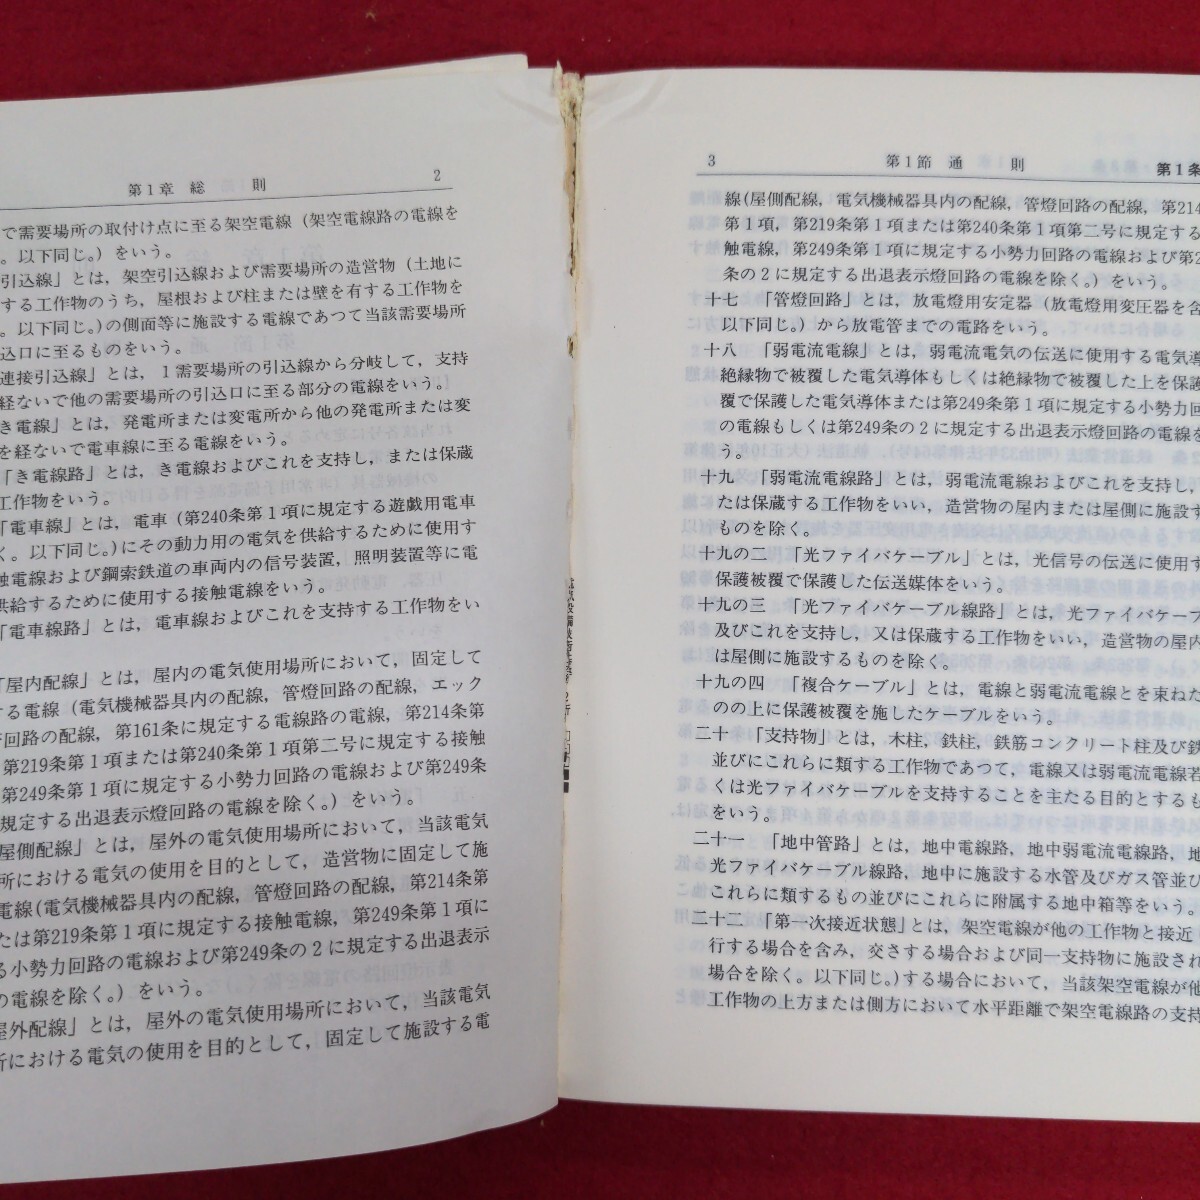 第1章 総　則　2
で需要場所の取付け点に至る架空電線（架空電線路の電線を
。以下同じ。）をいう。
引込線」とは，架空引込線および需要場所の造営物（土地に
する工作物のうち，屋根および柱または壁を有する工作物を
。以下同じ。）の側面等に施設する電線であつて当該需要場所
込口に至るものをいう。
連接引込線」とは，1需要場所の引込線から分岐して，支持
経ないで他の需要場所の引込口に至る部分の電線をいう。
き電線」とは，発電所または変電所から他の発電所または変
を経ないで電車線に至る電線をいう。
「き電線路」とは，き電線およびこれを支持し，または保蔵
工作物をいう。
「電車線」とは，電車（第240条第1項に規定する遊戯用電車
く。以下同じ。）にその動力用の電気を供給するために使用す
触電線および鋼索鉄道の車両内の信号装置，照明装置等に電
供給するために使用する接触電線をいう。
「電車線路」とは，電車線およびこれを支持する工作物をい
「屋内配線」とは，屋内の電気使用場所において，固定して
する電線（電気機械器具内の配線，管燈回路の配線，エック
回路の配線，第161条に規定する電線路の電線，第214条第
第219条第1項または第240条第1項第二号に規定する接触
第249条第1項に規定する小勢力回路の電線および第249条
規定する出退表示燈回路の電線を除く。）をいう。
屋側配線」とは，屋外の電気使用場所において，当該電気
所における電気の使用を目的として，造営物に固定して施
電線（電気機械器具内の配線，管燈回路の配線，第214条第
たは第219条第1項に規定する接触電線，第249条第1項に
る小勢力回路の電線および第249条の2に規定する出退表示
の電線を除く。）をいう。
屋外配線」とは，屋外の電気使用場所において，当該電気
所における電気の使用を目的として，固定して施設する電
3　第1節 通　則　第1条
線（屋側配線，電気機械器具内の配線，管燈回路の配線，第214
第1項，第219条第1項または第240条第1項第二号に規定する
触電線，第249条第1項に規定する小勢力回路の電線および第2
条の2に規定する出退表示燈回路の電線を除く。）をいう。
十七　「管燈回路」とは，放電燈用安定器（放電燈用変圧器を含
以下同じ。）から放電管までの電路をいう。
十八　「弱電流電線」とは，弱電流電気の伝送に使用する電気導
絶縁物で被覆した電気導体もしくは絶縁物で被覆した上を保護
覆で保護した電気導体または第249条第1項に規定する小勢力回
の電線もしくは第249条の2に規定する出退表示燈回路の電線を
う。
十九　「弱電流電線路」とは，弱電流電線およびこれを支持し，
たは保蔵する工作物をいい，造営物の屋内または屋側に施設す
ものを除く。
十九の二　「光ファイバケーブル」とは，光信号の伝送に使用す
保護被覆で保護した伝送媒体をいう。
十九の三　「光ファイバケーブル線路」とは，光ファイバケーブ
及びこれを支持し，又は保蔵する工作物をいい，造営物の屋内
は屋側に施設するものを除く。
十九の四　「複合ケーブル」とは，電線と弱電流電線とを束ねた
のの上に保護被覆を施したケーブルをいう。
二十　「支持物」とは，木柱，鉄柱，鉄筋コンクリート柱及び鉄
並びにこれらに類する工作物であつて，電線又は弱電流電線若
くは光ファイバケーブルを支持することを主たる目的とするも
をいう。
二十一　「地中管路」とは，地中電線路，地中弱電流電線路，地
光ファイバケーブル線路，地中に施設する水管及びガス管並び
これらに類するもの並びにこれらに附属する地中箱等をいう。
二十二　「第一次接近状態」とは，架空電線が他の工作物と接近
行する場合を含み，交さする場合および同一支持物に施設され
場合を除く。以下同じ。）する場合において，当該架空電線が他
工作物の上方または側方において水平距離で架空電線路の支持